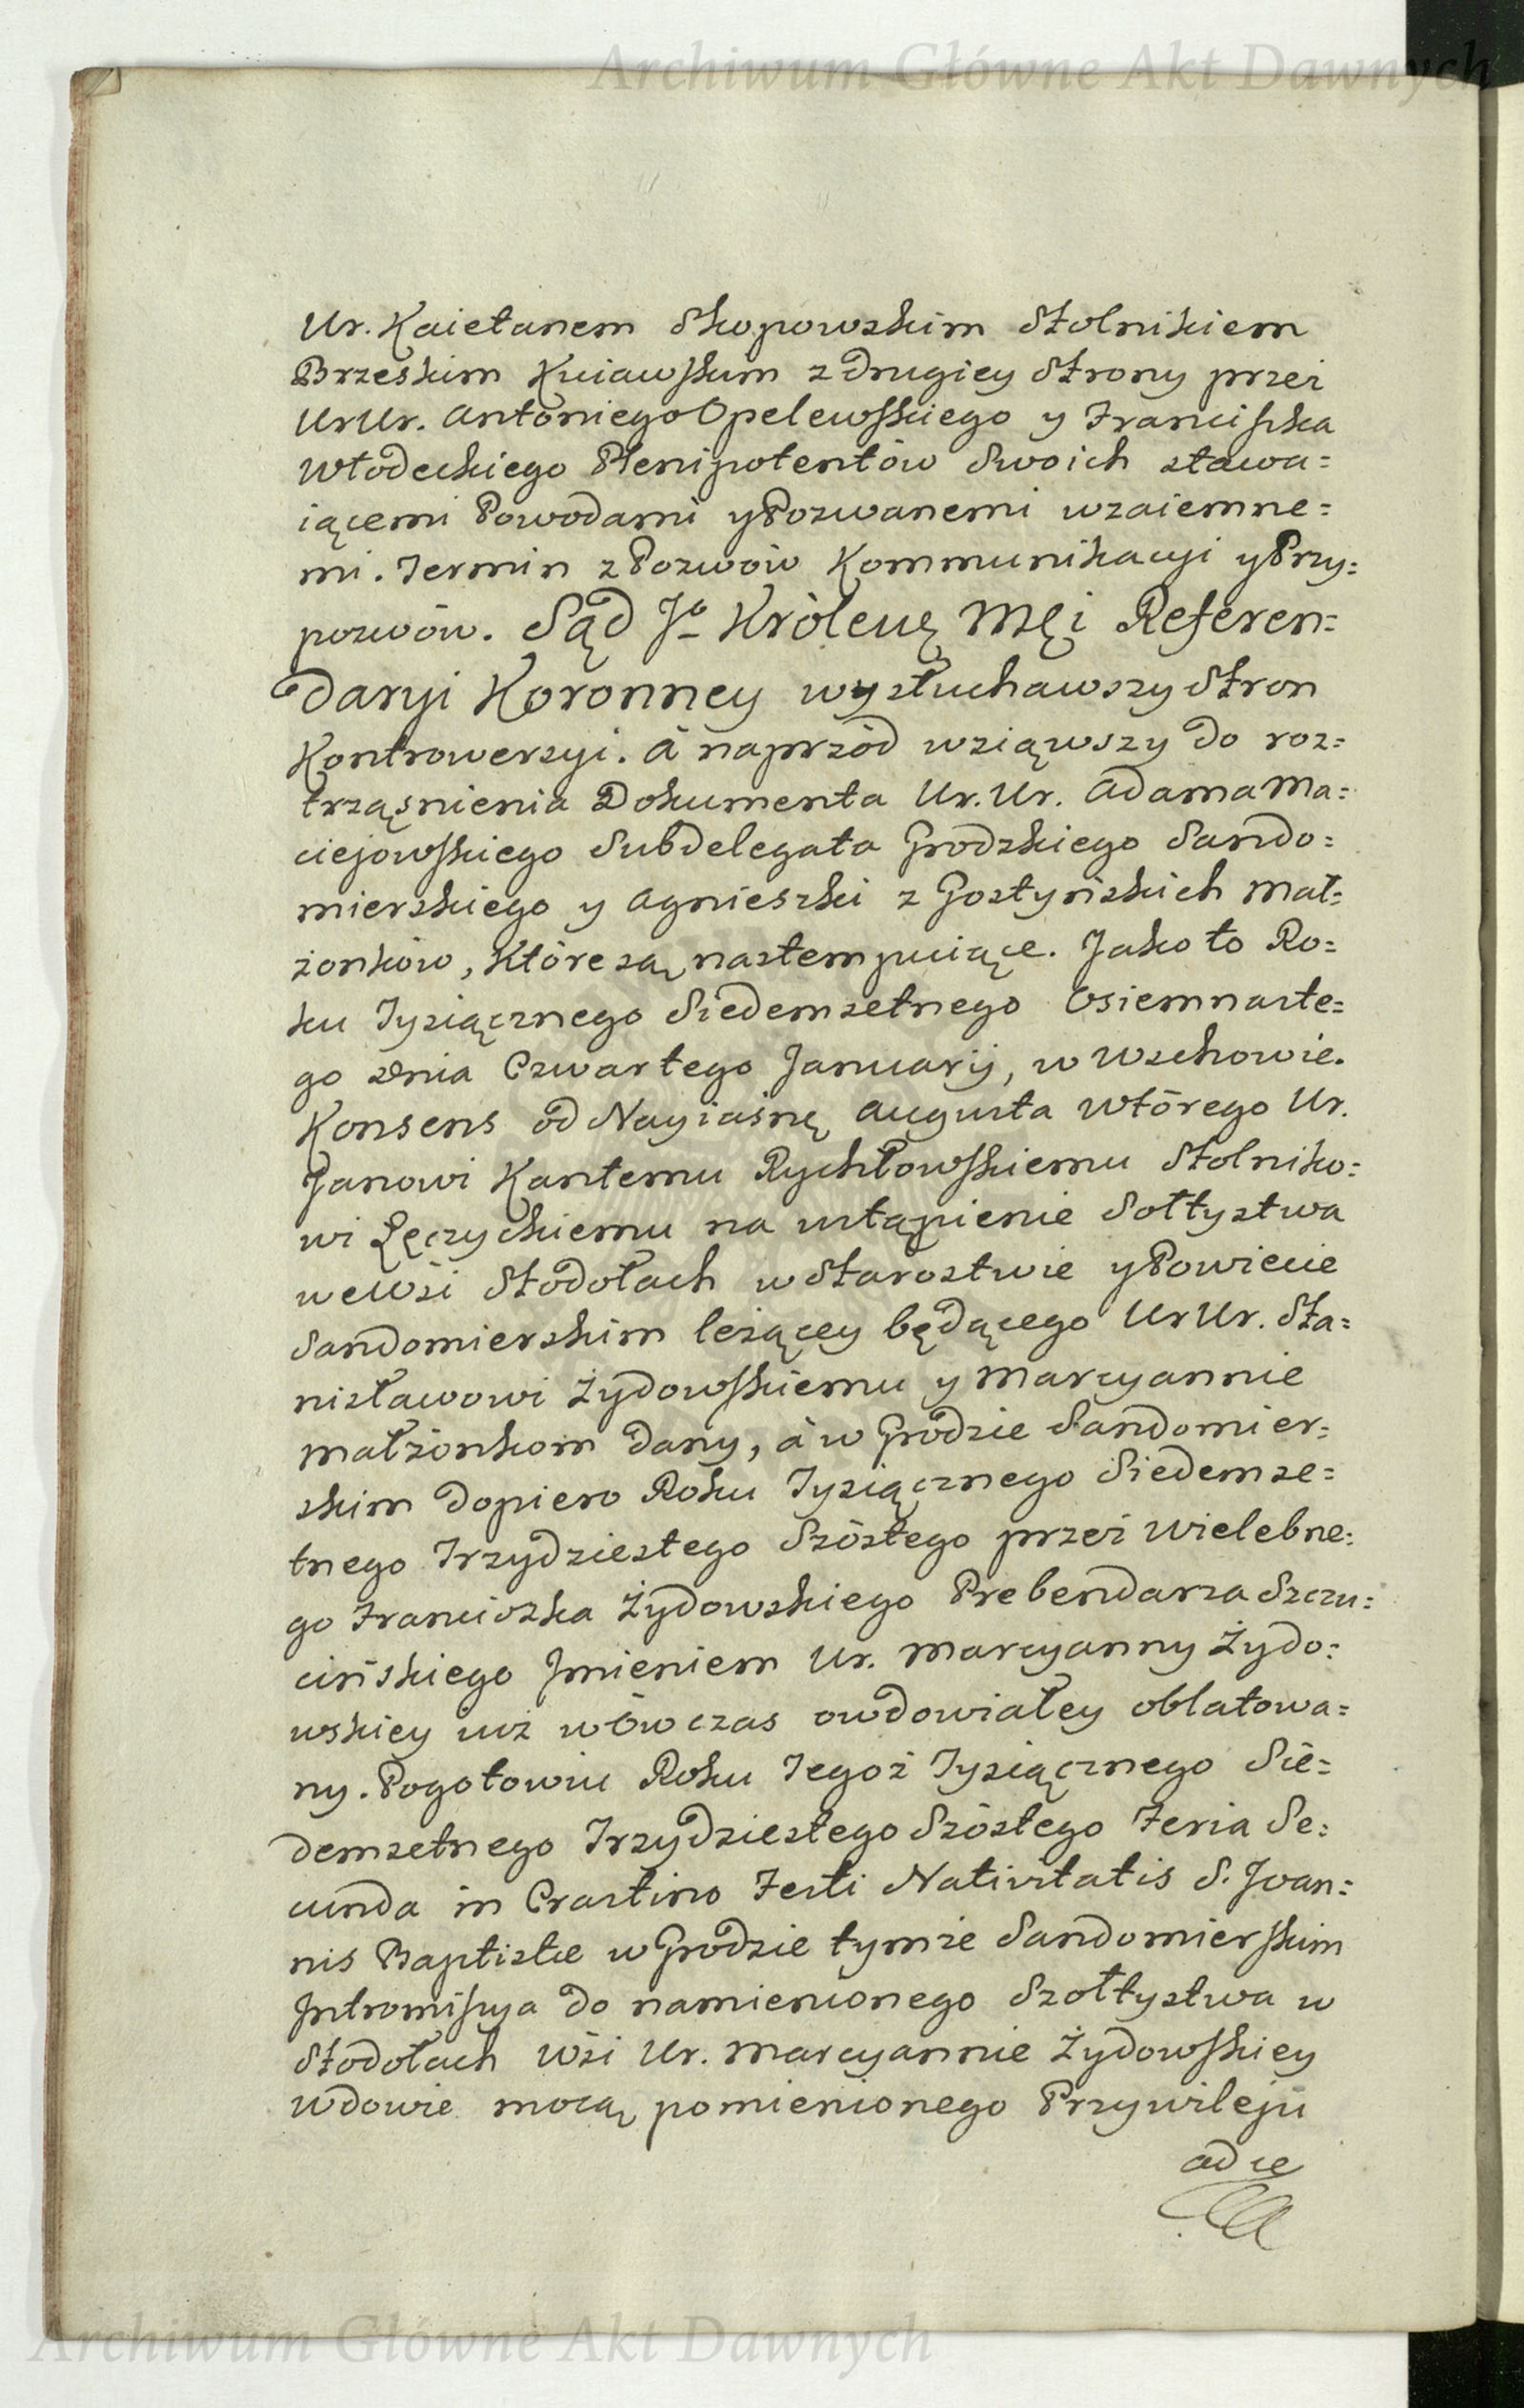 Archiwum Główne Akt Dawnych
Ur. Kaietanem Skopowskim Stolnikiem
Brzeskim Kuiawskim z drugiey Strony przez
UrUr. Antoniego Opelewskiego y Franciszka
Włodeckiego Plenipotentów Swoich stawa=
iącemi Powodami y Pozwanemi wzaiemne=
mi. Termin z Pozwów Kommunikacyi y Przy=
pozwów. Sąd Jº Królewę Męi Referen=
daryi Koronney wysłuchawszy Stron
Kontrowersyi. à naprzód wziąwszy do roz=
trząśnienia Dokumenta Ur. Ur. Adama Ma=
ciejowskiego Subdelegata Grodzkiego Sando=
mierskiego y Agnieszki z Gostyńskich Mał=
żonków, które są nastempuiące. Jako to Ro=
ku Tysiącznego Siedemsetnego Osiemnaste=
go dnia Czwartego Januarij, w Wschowie.
Konsens od Nayiaśnę Augusta Wtórego Ur.
Janowi Kantemu Rychłowskiemu Stolniko=
wi Łęczyckiemu na ustąpienie Sołtystwa
we Wsi Stodołach w Starostwie y Powiecie
Sandomierskim leżącey będącego UrUr. Sta=
nisławowi Żydowskiemu y Marcyannie
Małżonkom dany, à w Grodzie Sandomier=
skim dopiero Roku Tysiącznego Siedemse=
tnego Trzydziestego Szóstego przez Wielebne=
go Franciszka Żydowskiego Prebendarza Szczu=
cińskiego Jmieniem Ur. Marcyanny Żydo=
wskiey iuż wówczas owdowiałey oblatowa=
ny. Pogotowiu Roku Tegoż Tysiącznego Sie=
demsetnego Trzydziestego Szóstego Feria Se=
cunda in Crastino Festi Nativitatis S. Joan=
nis Baptistæ w Grodzie tymże Sandomierskim
Intromissya do namienionego Szołtystwa w
Stodołach Wsi Ur. Marcyannie Żydowskiey
Wdowie mocą pomienionego Przywileju
Archiwum Główne Akt Dawnych